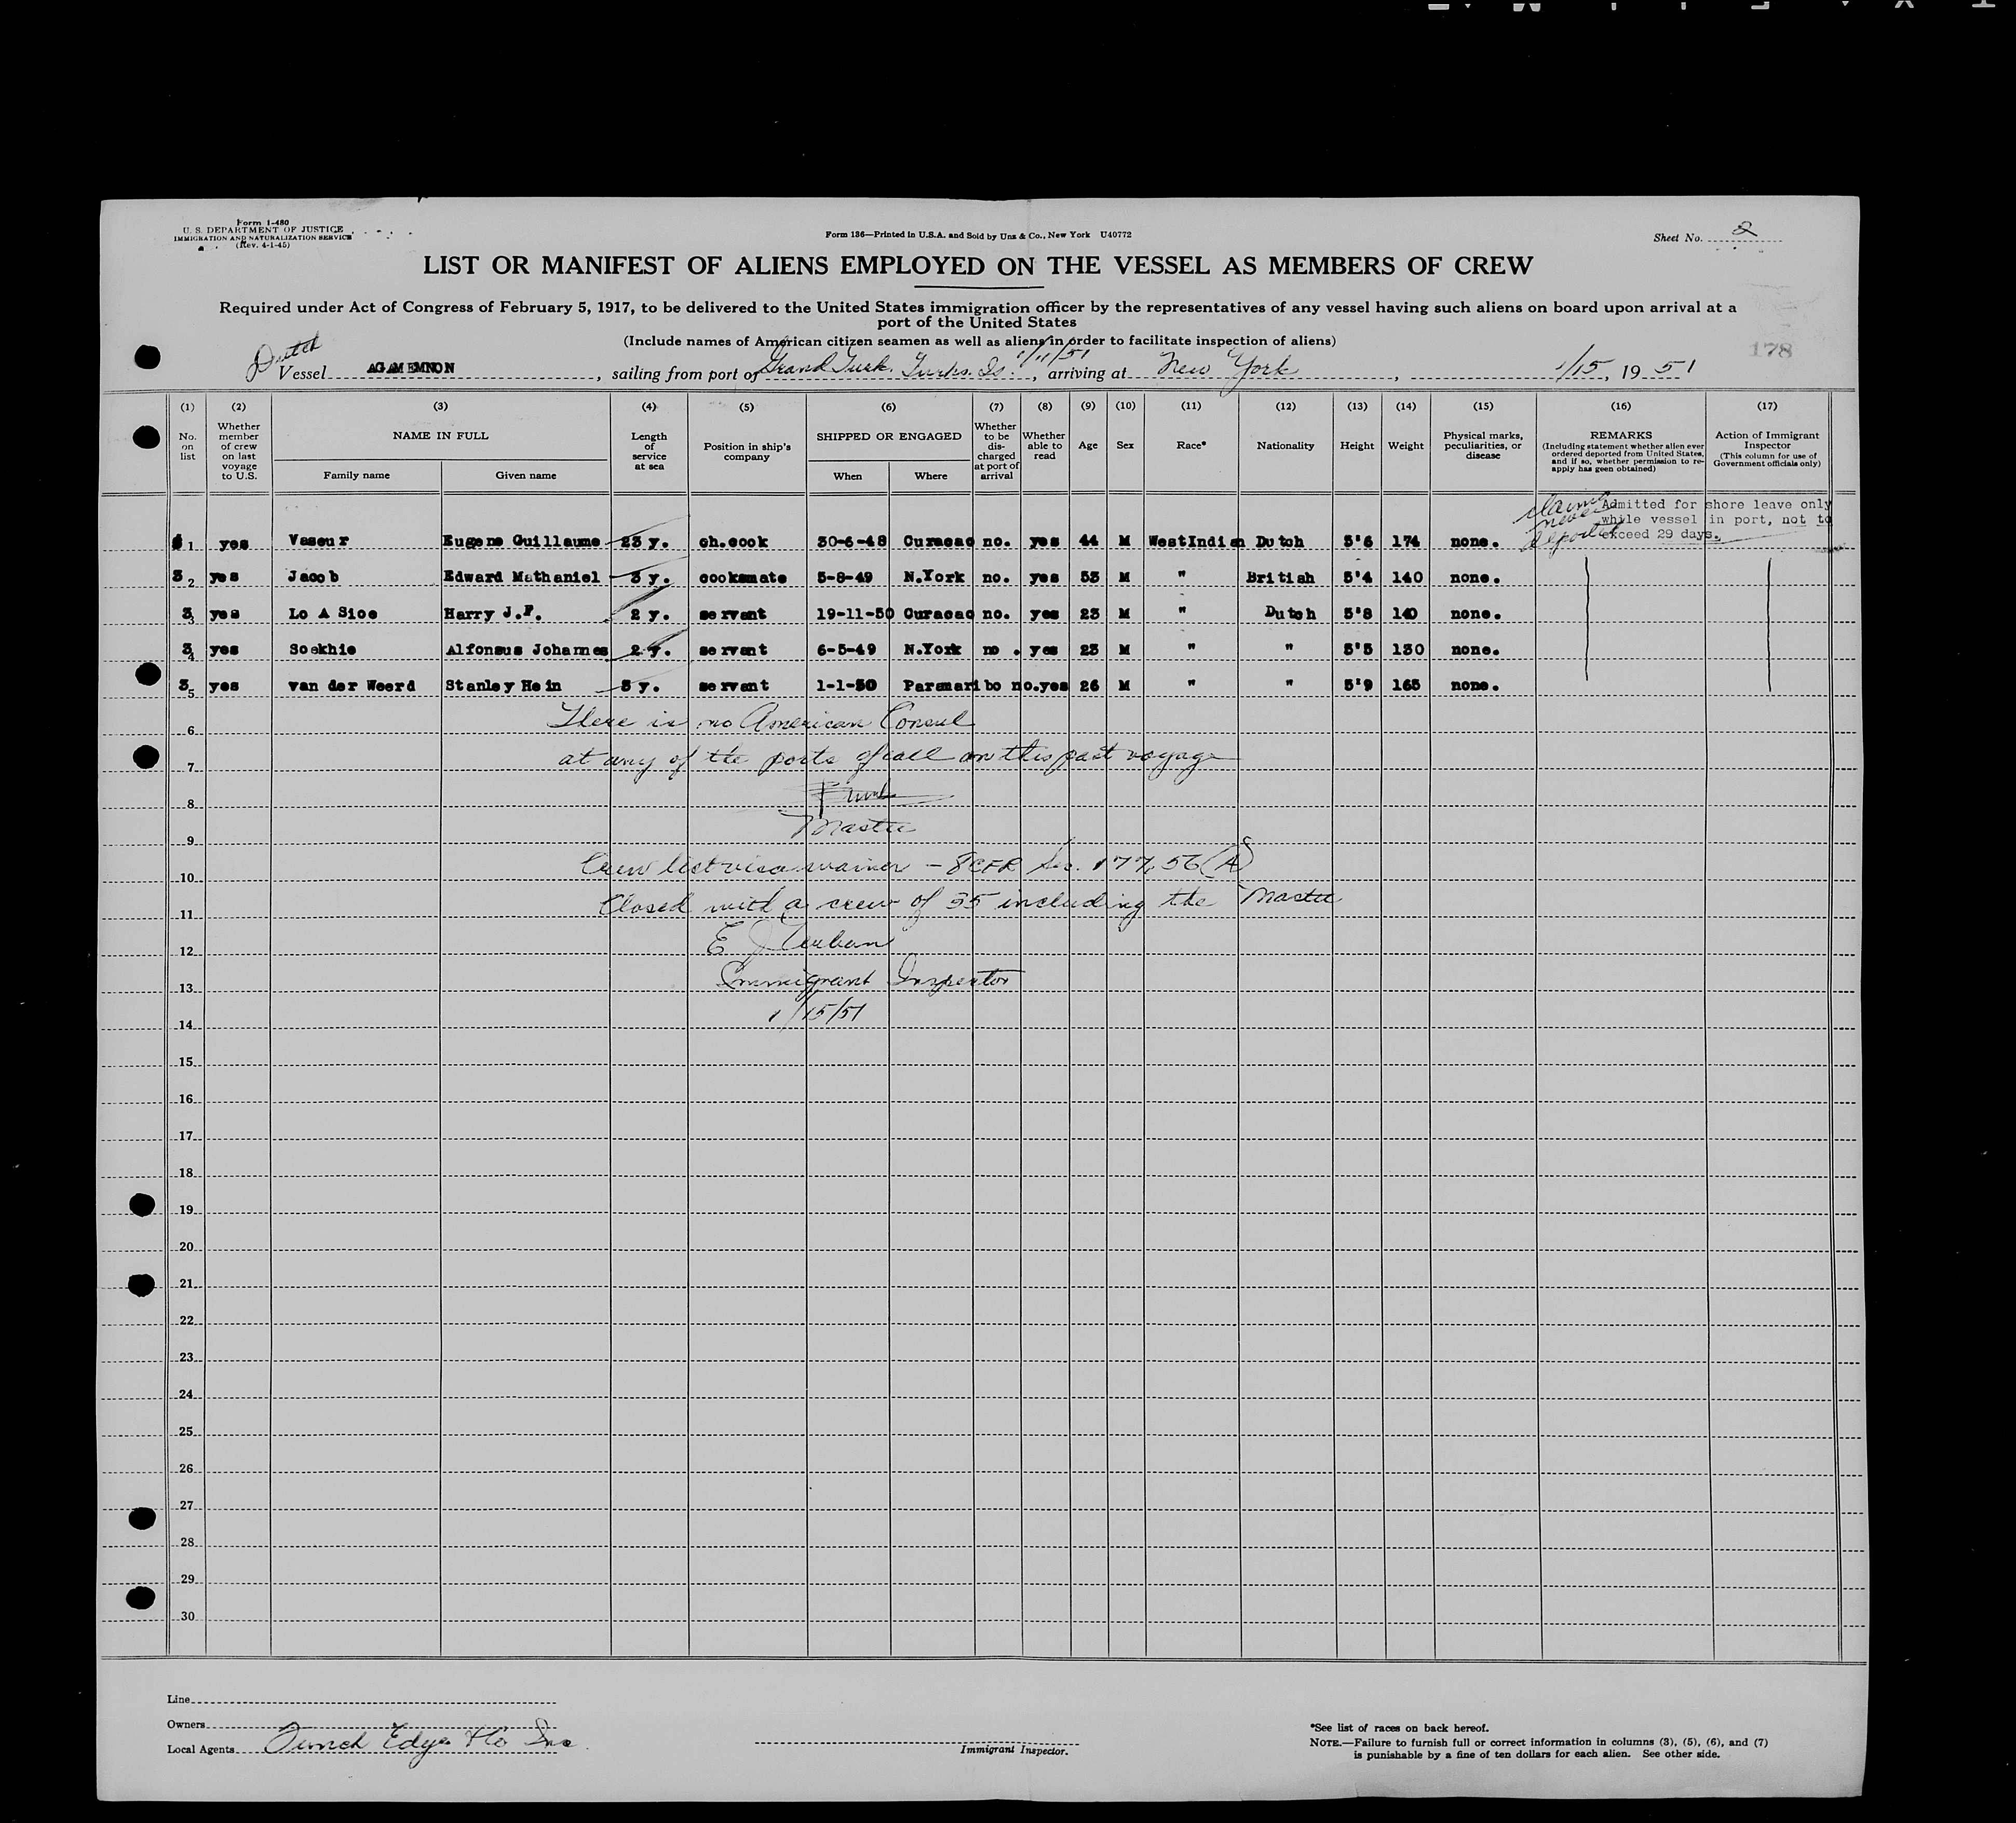 Form I-480
U. S. DEPARTMENT OF JUSTICE
IMMIGRATION AND NATURALIZATION SERVICE
(Rev. 4-1-45)
Form 136—Printed in U.S.A. and Sold by Unz & Co., New York U40772
Sheet No. 2
LIST OR MANIFEST OF ALIENS EMPLOYED ON THE VESSEL AS MEMBERS OF CREW
Required under Act of Congress of February 5, 1917, to be delivered to the United States immigration officer by the representatives of any vessel having such aliens on board upon arrival at a
port of the United States
(Include names of American citizen seamen as well as aliens in order to facilitate inspection of aliens)
178
Dutch
Vessel AGAMEMNON, sailing from port of Grand Turk. Turks. Is. 1/11/51, arriving at New York, 1/15, 19 51
(1) (2) (3) (4) (5) (6) (7) (8) (9) (10) (11) (12) (13) (14) (15) (16) (17)
No. on list
Whether member of crew on last voyage to U.S.
NAME IN FULL
Family name Given name
Length of service at sea
Position in ship's company
SHIPPED OR ENGAGED
When Where
Whether to be discharged at port of arrival
Whether able to read
Age
Sex
Race*
Nationality
Height
Weight
Physical marks, peculiarities, or disease
REMARKS
(Including statement whether alien ever ordered deported from United States, and if so, whether permission to re-apply has geen obtained)
Action of Immigrant Inspector
(This column for use of Government officials only)
claims never deported
Admitted for shore leave only
while vessel in port, not to
exceed 29 days.
1 yes Vaseur Eugene Guillaume 23 y. ch.cook 30-6-48 Curacao no. yes 44 M WestIndian Dutch 5'6 174 none.
2 yes Jacob Edward Nathaniel 3 y. cooksmate 5-8-49 N.York no. yes 53 M " British 5'4 140 none.
3 yes Lo A Sioe Harry J.F. 2 y. servant 19-11-50 Curacao no. yes 23 M " Dutch 5'8 140 none.
4 yes Soekhie Alfonsus Johannes 2 y. servant 6-5-49 N.York no. yes 23 M " " 5'5 130 none.
5 yes van der Weerd Stanley Hein 3 y. servant 1-1-50 Paramaribo no. yes 26 M " " 5'9 165 none.
There is no American Consul
6
at any of the ports of call on this past voyage
7
8
Master
9
Crew list visa waiver - 8CFR Sec. 177.56(A)
10
Closed with a crew of 35 including the Master
11
12
Immigrant Inspector
13
1/15/51
14
15
16
17
18
19
20
21
22
23
24
25
26
27
28
29
30
Line
Owners
Local Agents Funch Edye & Co Inc.
Immigrant Inspector.
*See list of races on back hereof.
NOTE.—Failure to furnish full or correct information in columns (3), (5), (6), and (7)
is punishable by a fine of ten dollars for each alien. See other side.